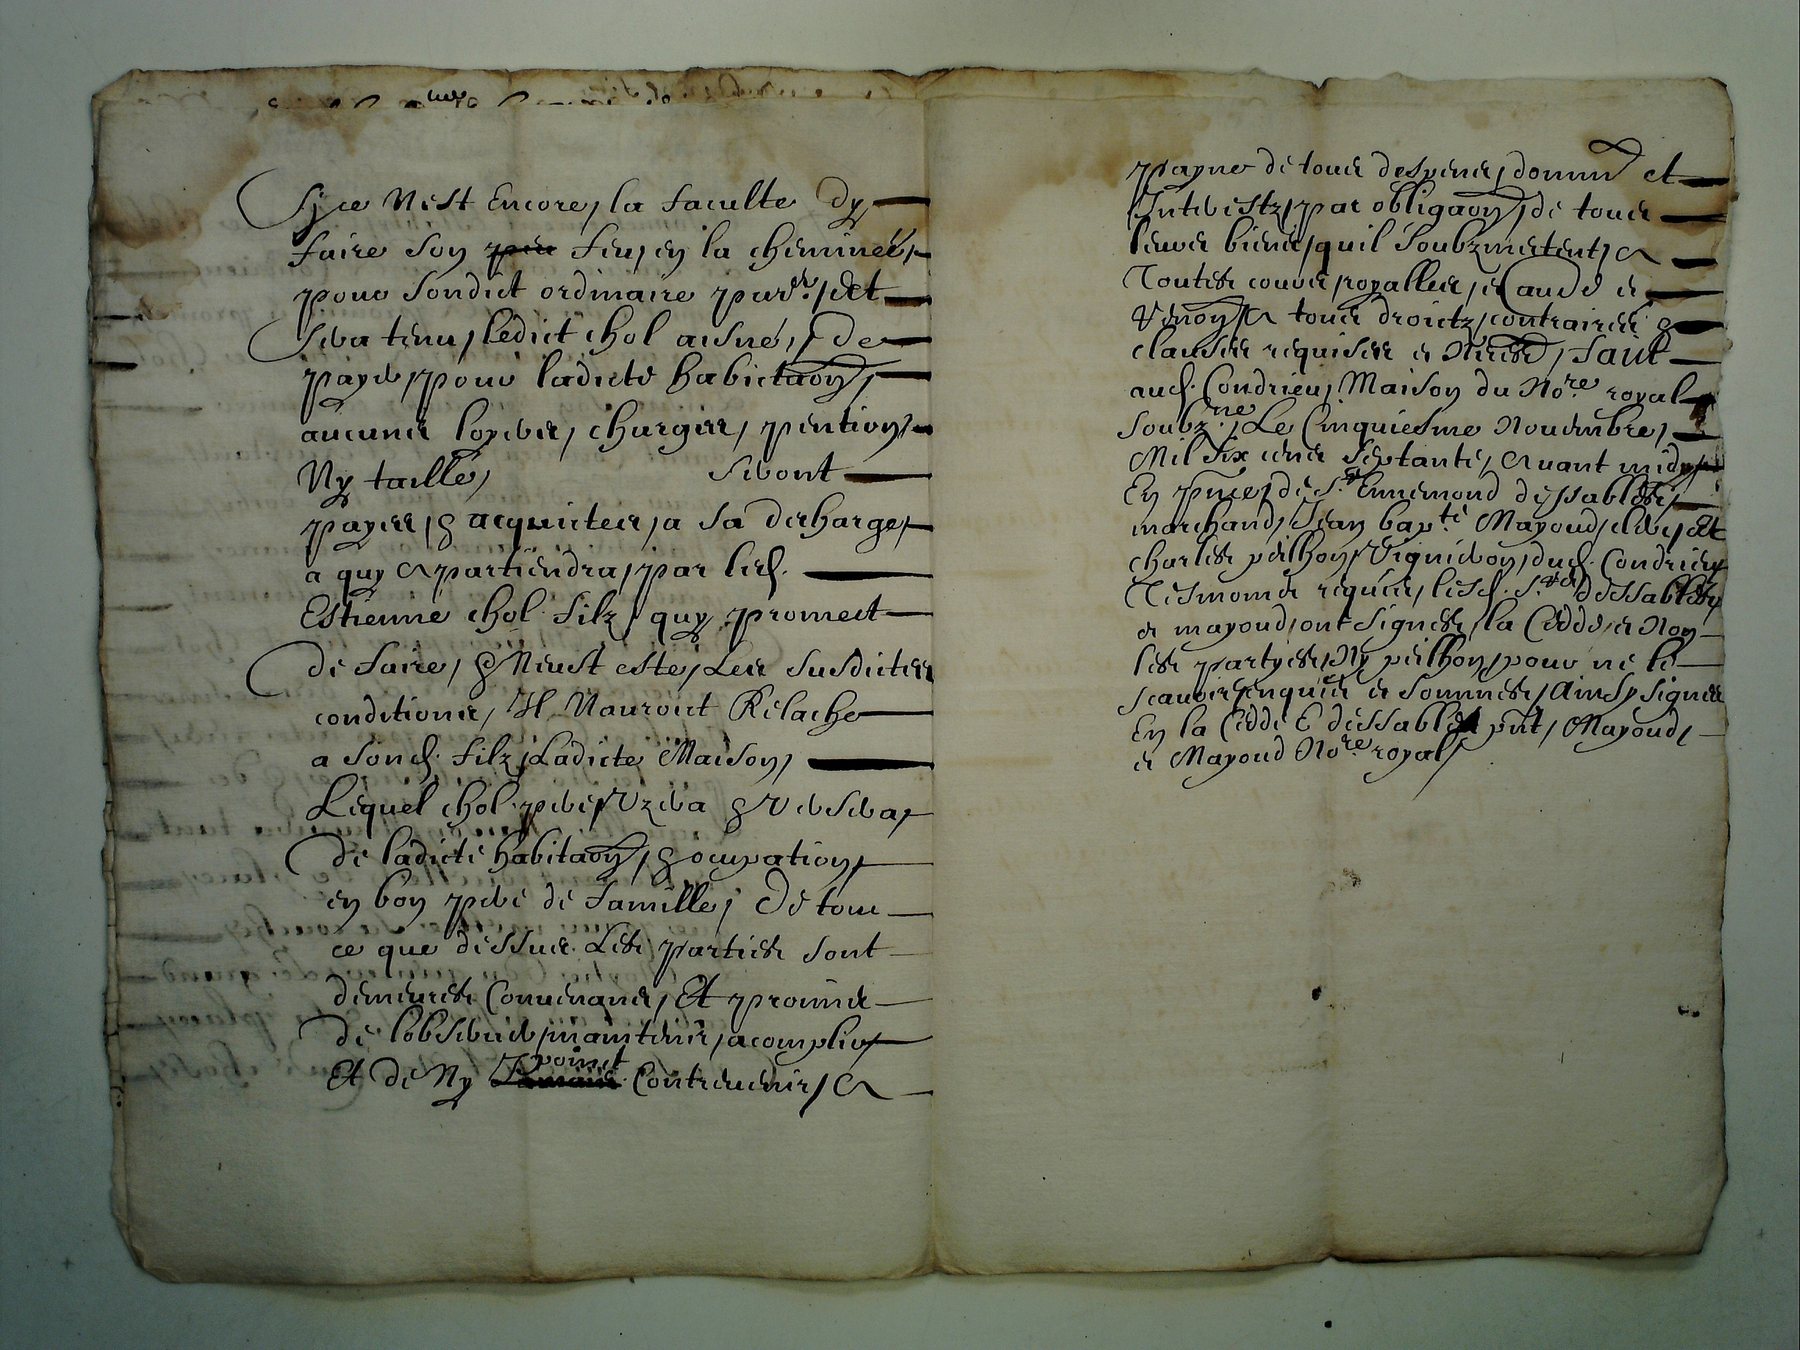 Sy ce N'est Encore, la faculte dy
faire son feu, en la cheminée,
pour sondict ordinaire Et
sera tenu, ledict chol aisné, de
payer, pour ladicte habictaon,
aucunes loyers, charges, pention,
Ny taille, seront
payes, & acquictees, a sa descharge,
a quy apartiendra, par led.
Estienne chol filz, quy promect
de faire, & Neust esté, Les susdictes
conditions, Il Nauroict Relaché
a sond. filz, Ladicte Maison,
Lequel chol pere, Uzera & Versera,
de ladicte habitaon, & ocupation,
en bon pere de famille, De tout
ce que dessus Les parties sont
demeurees Convenans, Et promis
de lobserver, maintenir, acomplir,
Et de Ny point Contrevenir, A
payne de tous despens, domm et
Interestz, par obligaon, de tous
leurs biens, quil soubzmettent, A
Toutes cours, royalles, et
tous droictz, contraires &
clauses requises et Neces, faict
aud. Condrieu, Maison du No.re royal
soubz.ne, Le Cinquiesme Novembre,
Mil six cens septante, Avant midy,
En pnce, de S.r Ennemond dessables,
marchand, Jean bap.te Mayoud, clerc, Et
charles peilhon, Vigneron, dud. Condrieu
Tesmoins requis, lesd. S.r dessables
et mayoud, ont signes, la Cedde, et Non
les partyes, Ny peilhon, pour ne le
scavoir, enquis et sommes, Ainsy signes
En la Cedde E dessables pnt, Mayoud,
et Mayoud No.re royal,